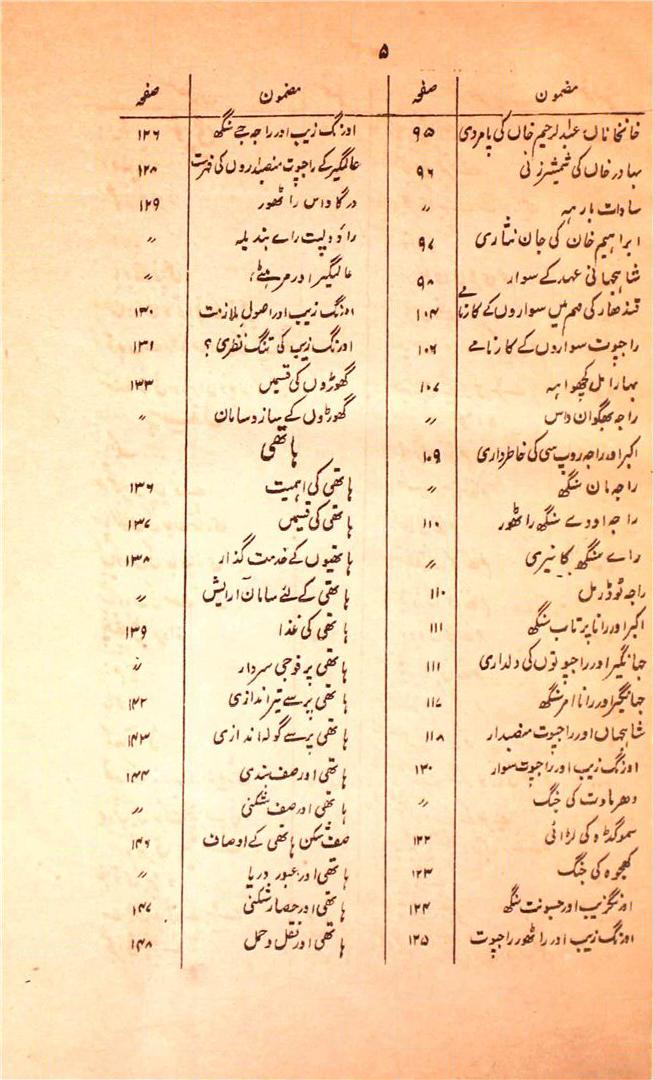 ۵
مضمون صفحہ
خانخاناں عبدالرحیم خاں کی پامردی ۹۵
بہادر خاں کی شمشیر زنی ۹۶
سادات بارہہ 〃
ابراہیم خان کی جان نثاری ۹۷
شاہجہانی عہد کے سوار ۹۸
قندھار کی مہم میں سواروں کے کارنامے ۱۰۴
راجپوت سواروں کے کارنامے ۱۰۶
بہارا مل کچھواہہ ۱۰۷
راجہ بھگوان داس 〃
اکبر اور راجہ روپ سی کی خاطرداری ۱۰۹
راجہ مان سنگھ 〃
راجہ اودے سنگھ راٹھور ۱۱۰
راے سنگھ بکانیری 〃
راجہ ٹوڈر مل ۱۱۰
اکبر اور رانا پرتاب سنگھ ۱۱۱
جہانگیر اور راجپوتوں کی دلداری ۱۱۱
جہانگیر اور رانا امر سنگھ ۱۱۷
شاہجہاں اور راجپوت منصبدار ۱۱۸
اورنگ زیب اور راجپوت سوار ۱۳۰
دھرماوت کی جنگ 〃
سموگڈہ کی لڑائی ۱۲۲
کھجوہ کی جنگ ۱۲۳
اورنگزیب اور جسونت سنگھ ۱۲۴
اورنگ زیب اور راٹھور راجپوت ۱۲۵
مضمون صفحہ
اورنگ زیب اور راجہ جے سنگھ ۱۲۶
عالمگیر کے راجپوت منصبداروں کی فہرست ۱۲۸
درگا داس راٹھور ۱۲۹
راؤ دلپت راے بندیلہ 〃
عالمگیر اور مرہٹے 〃
اورنگ زیب اور اصول ملازمت ۱۳۰
اورنگ زیب کی تنگ نظری؟ ۱۳۱
گھوڑوں کی قسمیں ۱۳۳
گھوڑوں کے ساز و سامان 〃
ہاتھی
ہاتھی کی اہمیت ۱۳۶
ہاتھی کی قسمیں ۱۳۷
ہاتھیوں کے خدمت گذار ۱۳۸
ہاتھی کے لئے سامان آرایش 〃
ہاتھی کی غذا ۱۳۹
ہاتھی پر فوجی سردار 〃
ہاتھی پر سے تیر اندازی ۱۴۲
ہاتھی پر سے گولہ اندازی ۱۴۳
ہاتھی اور صف بندی ۱۴۴
ہاتھی اور صف شکنی 〃
صف شکن ہاتھی کے اوصاف ۱۴۶
ہاتھی اور عبور دریا 〃
ہاتھی اور حصار شکنی ۱۴۷
ہاتھی اور نقل و حمل ۱۴۸